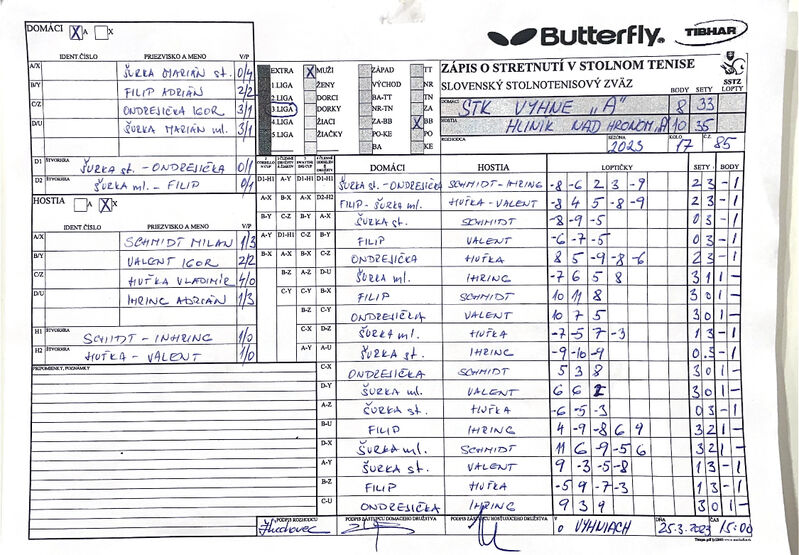 DOMÁCI X A X
Butterfly. TIBHAR
IDENT ČÍSLO PRIEZVISKO A MENO V/P
A/X ŠURKA MARIÁN st. 0/4
B/Y FILIP ADRIÁN 2/2
C/Z ONDREJIČKA IGOR 3/1
D/U ŠURKA MARIÁN ml. 3/1
D1 ŠTVORHRA ŠURKA st. - ONDREJIČKA 0/1
D2 ŠTVORHRA ŠURKA ml. - FILIP 0/1
EXTRA X MUŽI ZÁPAD TT
1 LIGA ŽENY VÝCHOD NR
2 LIGA DORCI BA-TT TN
3 LIGA DORKY NR-TN ZA
4 LIGA ŽIACI ZA-BB X BB
5 LIGA ŽIAČKY PO-KE PO
BA KE
ZÁPIS O STRETNUTÍ V STOLNOM TENISE
SLOVENSKÝ STOLNOTENISOVÝ ZVÄZ SSTZ
BODY SETY LOPTY
DOMÁCI STK VYHNE "A" 8 33
HOSTIA HLINÍK NAD HRONOM "A" 10 35
ROZHODCA SEZÓNA 2023 KOLO 17 Č.Z. 85
HOSTIA A X
IDENT ČÍSLO PRIEZVISKO A MENO V/P
A/X SCHMIDT MILAN 1/3
B/Y VALENT IGOR 2/2
C/Z HUŤKA VLADIMÍR 4/0
D/U IHRING ADRIÁN 1/3
H1 ŠTVORHRA SCHMIDT - IHRING 1/0
H2 ŠTVORHRA HUŤKA - VALENT 1/0
PRIPOMIENKY, POZNÁMKY
DOMÁCI HOSTIA LOPTIČKY SETY BODY
D1-H1 A-Y D1-H1 D1-H1 ŠURKA st. - ONDREJIČKA SCHMIDT - IHRING -8 -6 2 3 -9 2 3 - 1
A-X B-X A-X D2-H2 FILIP - ŠURKA ml. HUŤKA - VALENT -8 4 5 -8 -9 2 3 - 1
B-Y C-Z B-Y A-X ŠURKA st. SCHMIDT -8 -9 -5 0 3 - 1
A-Y D1-H1 C-Z B-Y FILIP VALENT -6 -7 -5 0 3 - 1
B-X A-X B-X C-Z ONDREJIČKA HUŤKA 8 5 -9 -8 -6 2 3 - 1
B-Z A-Z D-U ŠURKA ml. IHRING -7 6 5 8 3 1 1 -
C-Y C-Y B-X FILIP SCHMIDT 10 11 8 3 0 1 -
B-Z C-Y ONDREJIČKA VALENT 10 7 5 3 0 1 -
C-X D-Z ŠURKA ml. HUŤKA -7 -5 7 -3 1 3 - 1
A-Y A-U ŠURKA st. IHRING -9 -10 -9 0 3 - 1
C-X ONDREJIČKA SCHMIDT 5 3 8 3 0 1 -
D-Y ŠURKA ml. VALENT 6 6 2 3 0 1 -
A-Z ŠURKA st. HUŤKA -6 -5 -3 0 3 - 1
B-U FILIP IHRING 4 -9 -8 6 9 3 2 1 -
D-X ŠURKA ml. SCHMIDT 11 6 -9 -5 6 3 2 1 -
A-Y ŠURKA st. VALENT 9 -3 -5 -8 1 3 - 1
B-Z FILIP HUŤKA -5 9 -7 -3 1 3 - 1
C-U ONDREJIČKA IHRING 9 3 9 3 0 1 -
PODPIS ROZHODCU PODPIS ZÁSTUPCU DOMÁCEHO DRUŽSTVA PODPIS ZÁSTUPCU HOSŤUJÚCEHO DRUŽSTVA V VYHNIACH DŇA 25.3.2023 ČAS 15:00